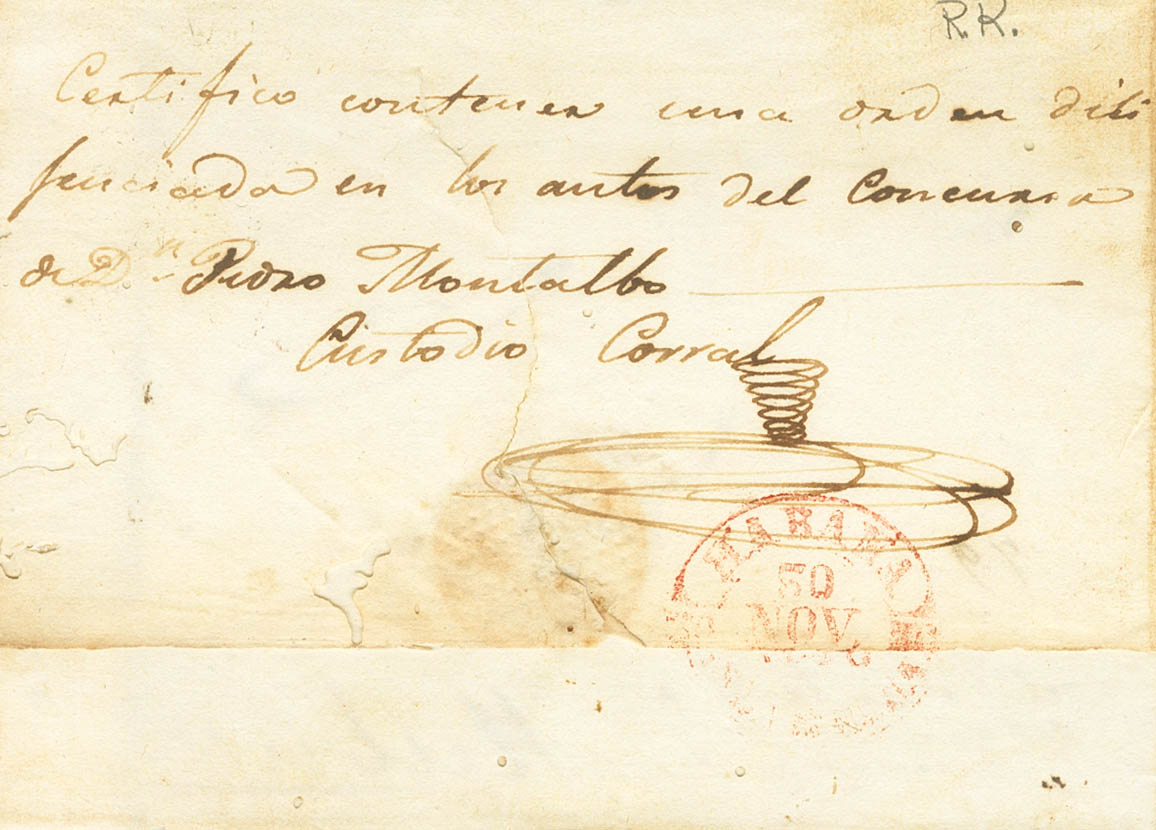 R.K.
Certifico contener una orden dili
fenciada en los autos del Concurso
de Dn Pedro Montalbo
Custodio Corral
HABANA
30
NOV.